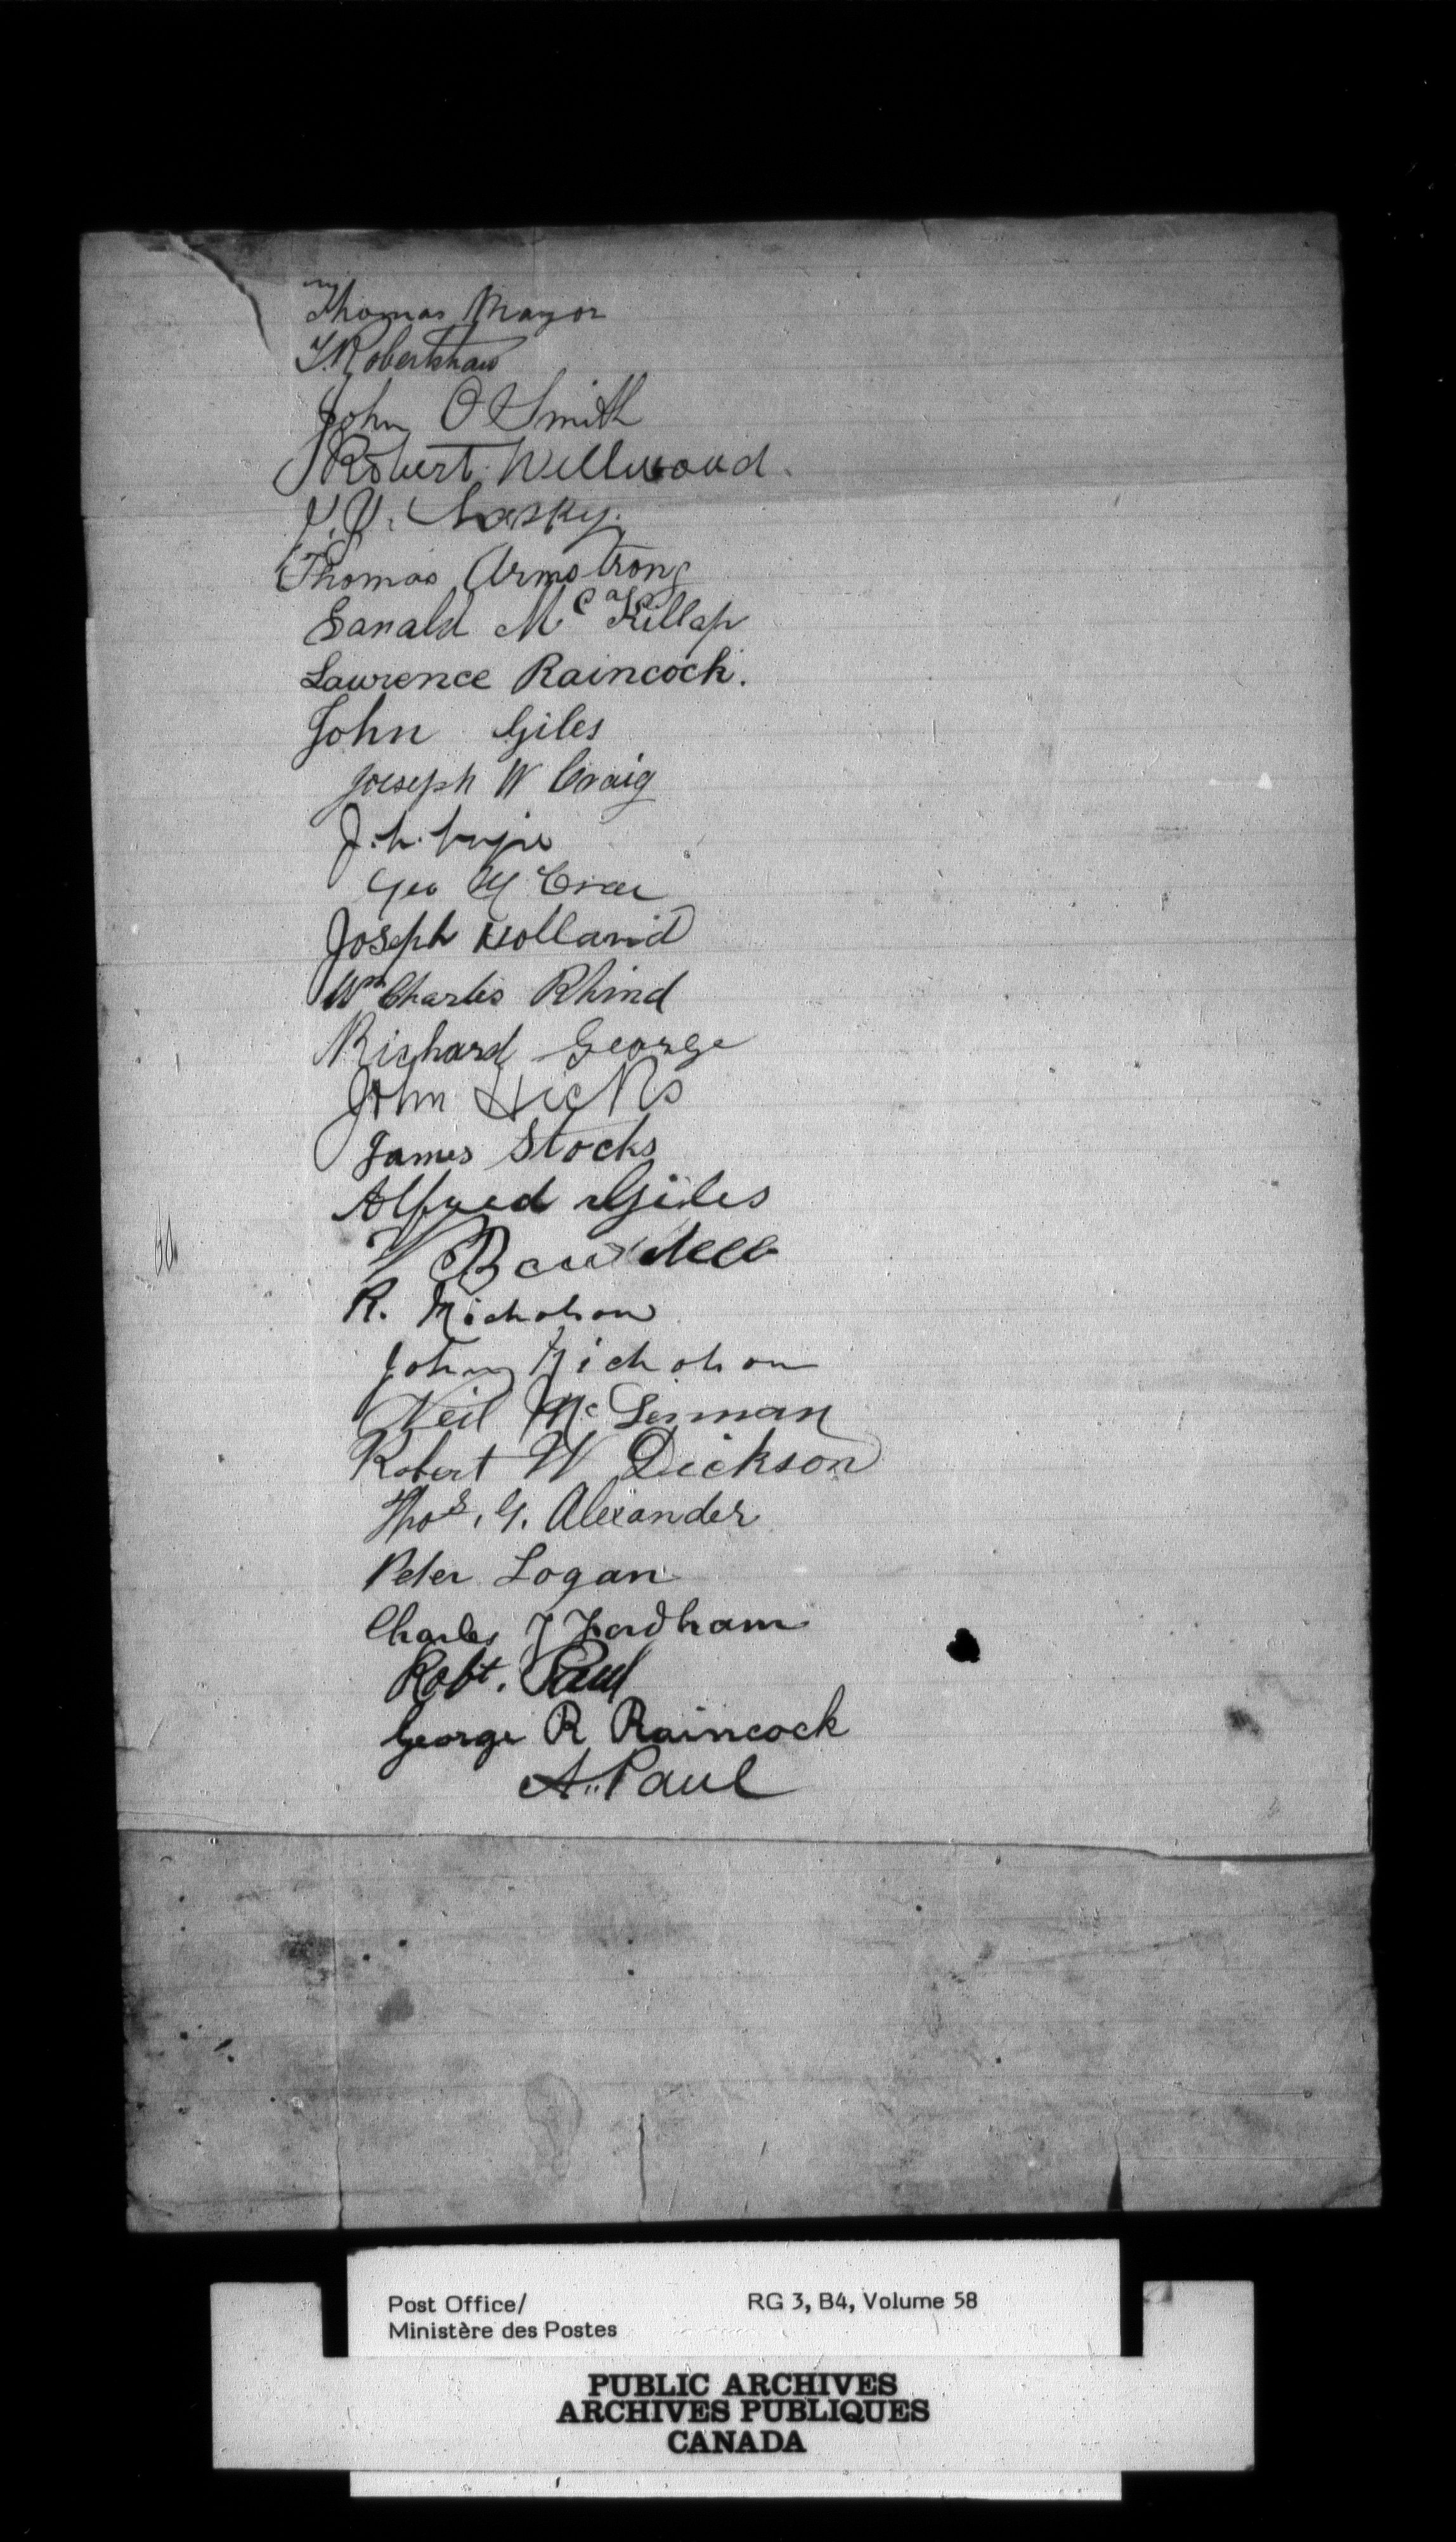 Thomas Mayor
T. Robertshaw
John O Smith
Robert Wellwood.
Thomas Armstrong
Mc Killop
Lawrence Raincock.
John Giles
Joesph W Craig
J. h.
Geo
Joseph Holland
Wm Charles Rhind
Richard George
John Hicks
James Stocks
Alfred Giles
W
R. Nicholson
John Nicholson
Neil Mc
Robert W Dickson
Thos. G. Alexander
Peter Logan
Charles J Fordham
Robt. Paul
George R Raincock
A. Paul
Post Office/ RG 3, B4, Volume 58
Ministère des Postes
PUBLIC ARCHIVES
ARCHIVES PUBLIQUES
CANADA